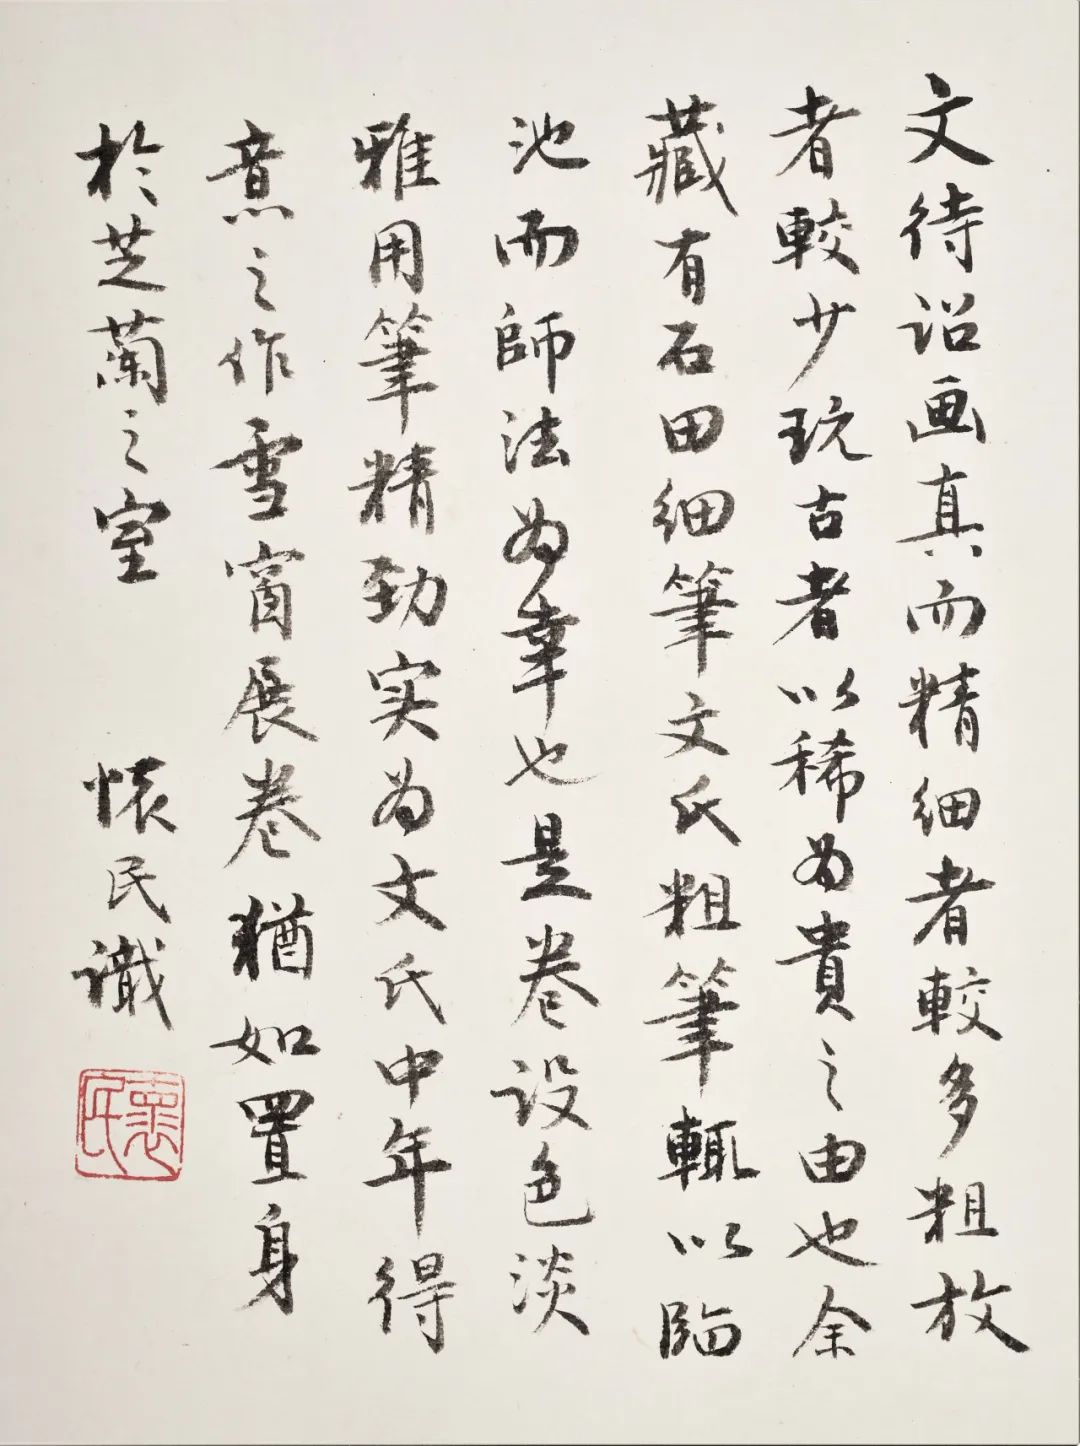 文待诏画真而精细者較多粗放
者較少玩古者以稀为貴之由也余
藏有石田细筆文氏粗筆輒以临
池而師法为幸也是卷设色淡
雅用筆精劲实为文氏中年得
意之作雪窗展卷猶如置身
於芝蘭之室
懐民識
懷民